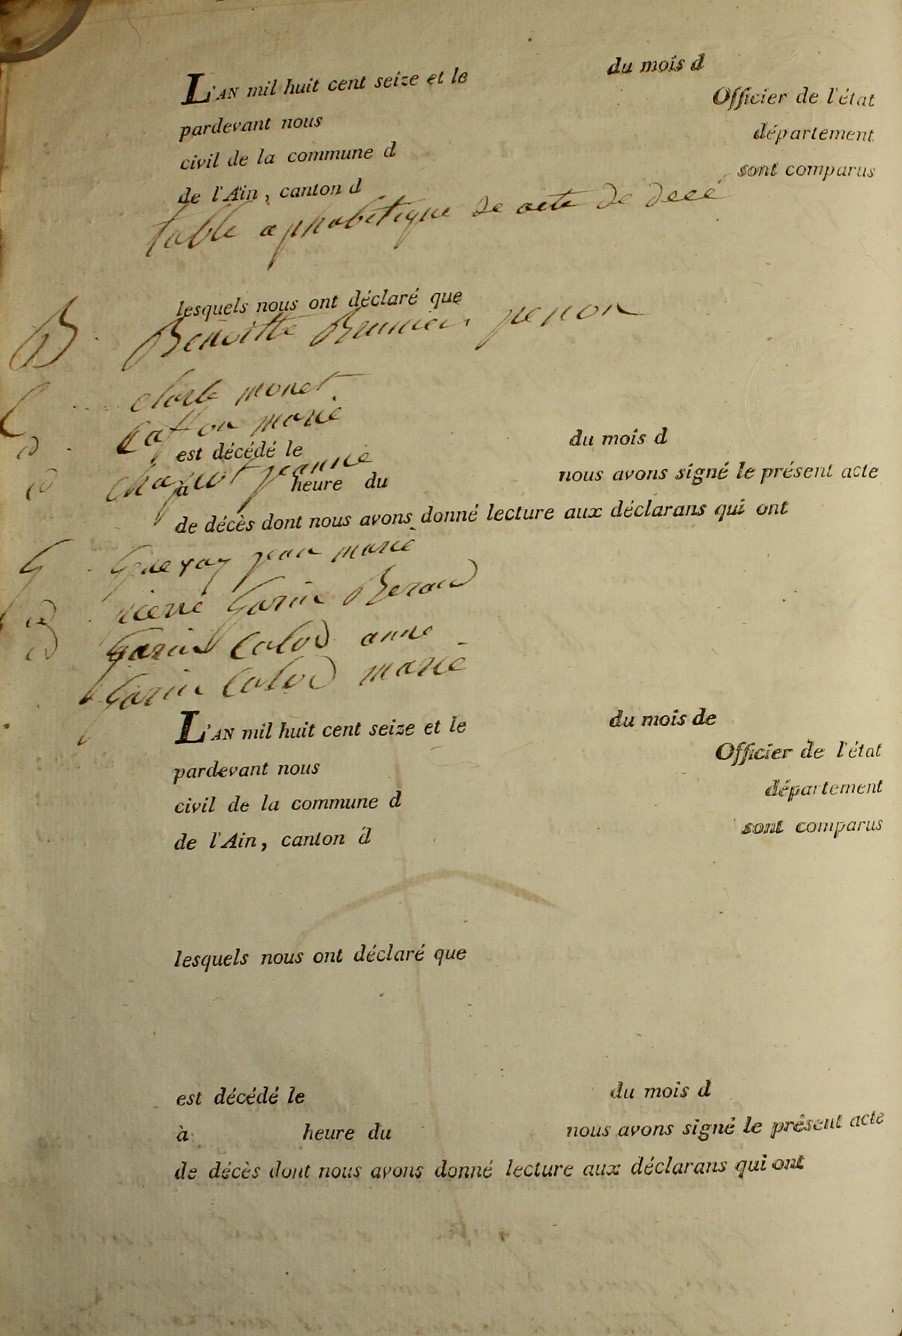 L'AN mil huit cent seize et le du mois d
pardevant nous Officier de l'état
civil de la commune d département
de l'Ain, canton d sont comparus
table alphabétique de acte de decé
lesquels nous ont déclaré que
B. Benoitte Brunier penon
C clarle monet
d Caffon marie
est décédé le du mois d
d chapuot jeanne
à heure du nous avons signé le présent acte
de décès dont nous avons donné lecture aux déclarans qui ont
G jean marie
d pierre Garin Beraud
d Garin Colod anne
Garin Colod marie
L'AN mil huit cent seize et le du mois de
pardevant nous Officier de l'état
civil de la commune d département
de l'Ain, canton d sont comparus
lesquels nous ont déclaré que
est décédé le du mois d
à heure du nous avons signé le présent acte
de décès dont nous avons donné lecture aux déclarans qui ont